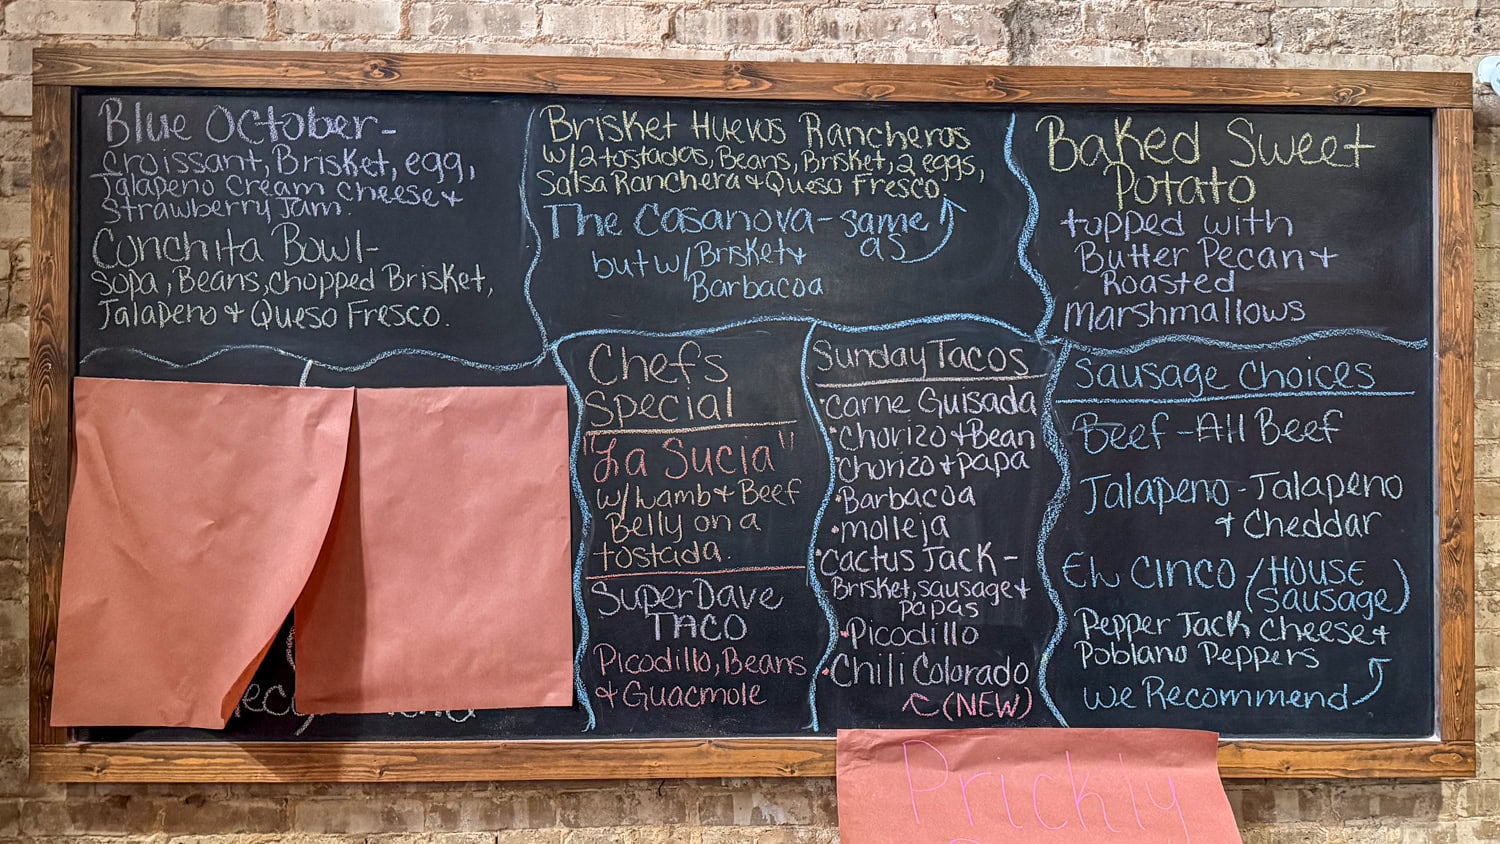 Blue October-
Croissant, Brisket, egg,
Jalapeno Cream Cheese &
Strawberry Jam.
Conchita Bowl-
Sopa, Beans, Chopped Brisket,
Jalapeno & Queso Fresco.
Brisket Huevos Rancheros
w/2 tostadas, Beans, Brisket, 2 eggs,
Salsa Ranchera & Queso Fresco.
The Casanova - same
as
but w/ Brisket &
Barbacoa
Baked Sweet
Potato
topped with
Butter Pecan &
Roasted
Marshmallows
Chefs
Special
"La Sucia"
w/ Lamb & Beef
Belly on a
tostada.
SuperDave
TACO
Picodillo, Beans
& Guacmole
Sunday Tacos
•Carne Guisada
•Chorizo & Bean
•Chorizo & papa
•Barbacoa
•molleja
•Cactus Jack-
Brisket, sausage &
papas
•Picodillo
•Chili Colorado
(NEW)
Sausage Choices
Beef - All Beef
Jalapeno - Jalapeno
& Cheddar
EL CINCO (HOUSE
Sausage)
Pepper Jack Cheese &
Poblano Peppers
We Recommend
Prickly